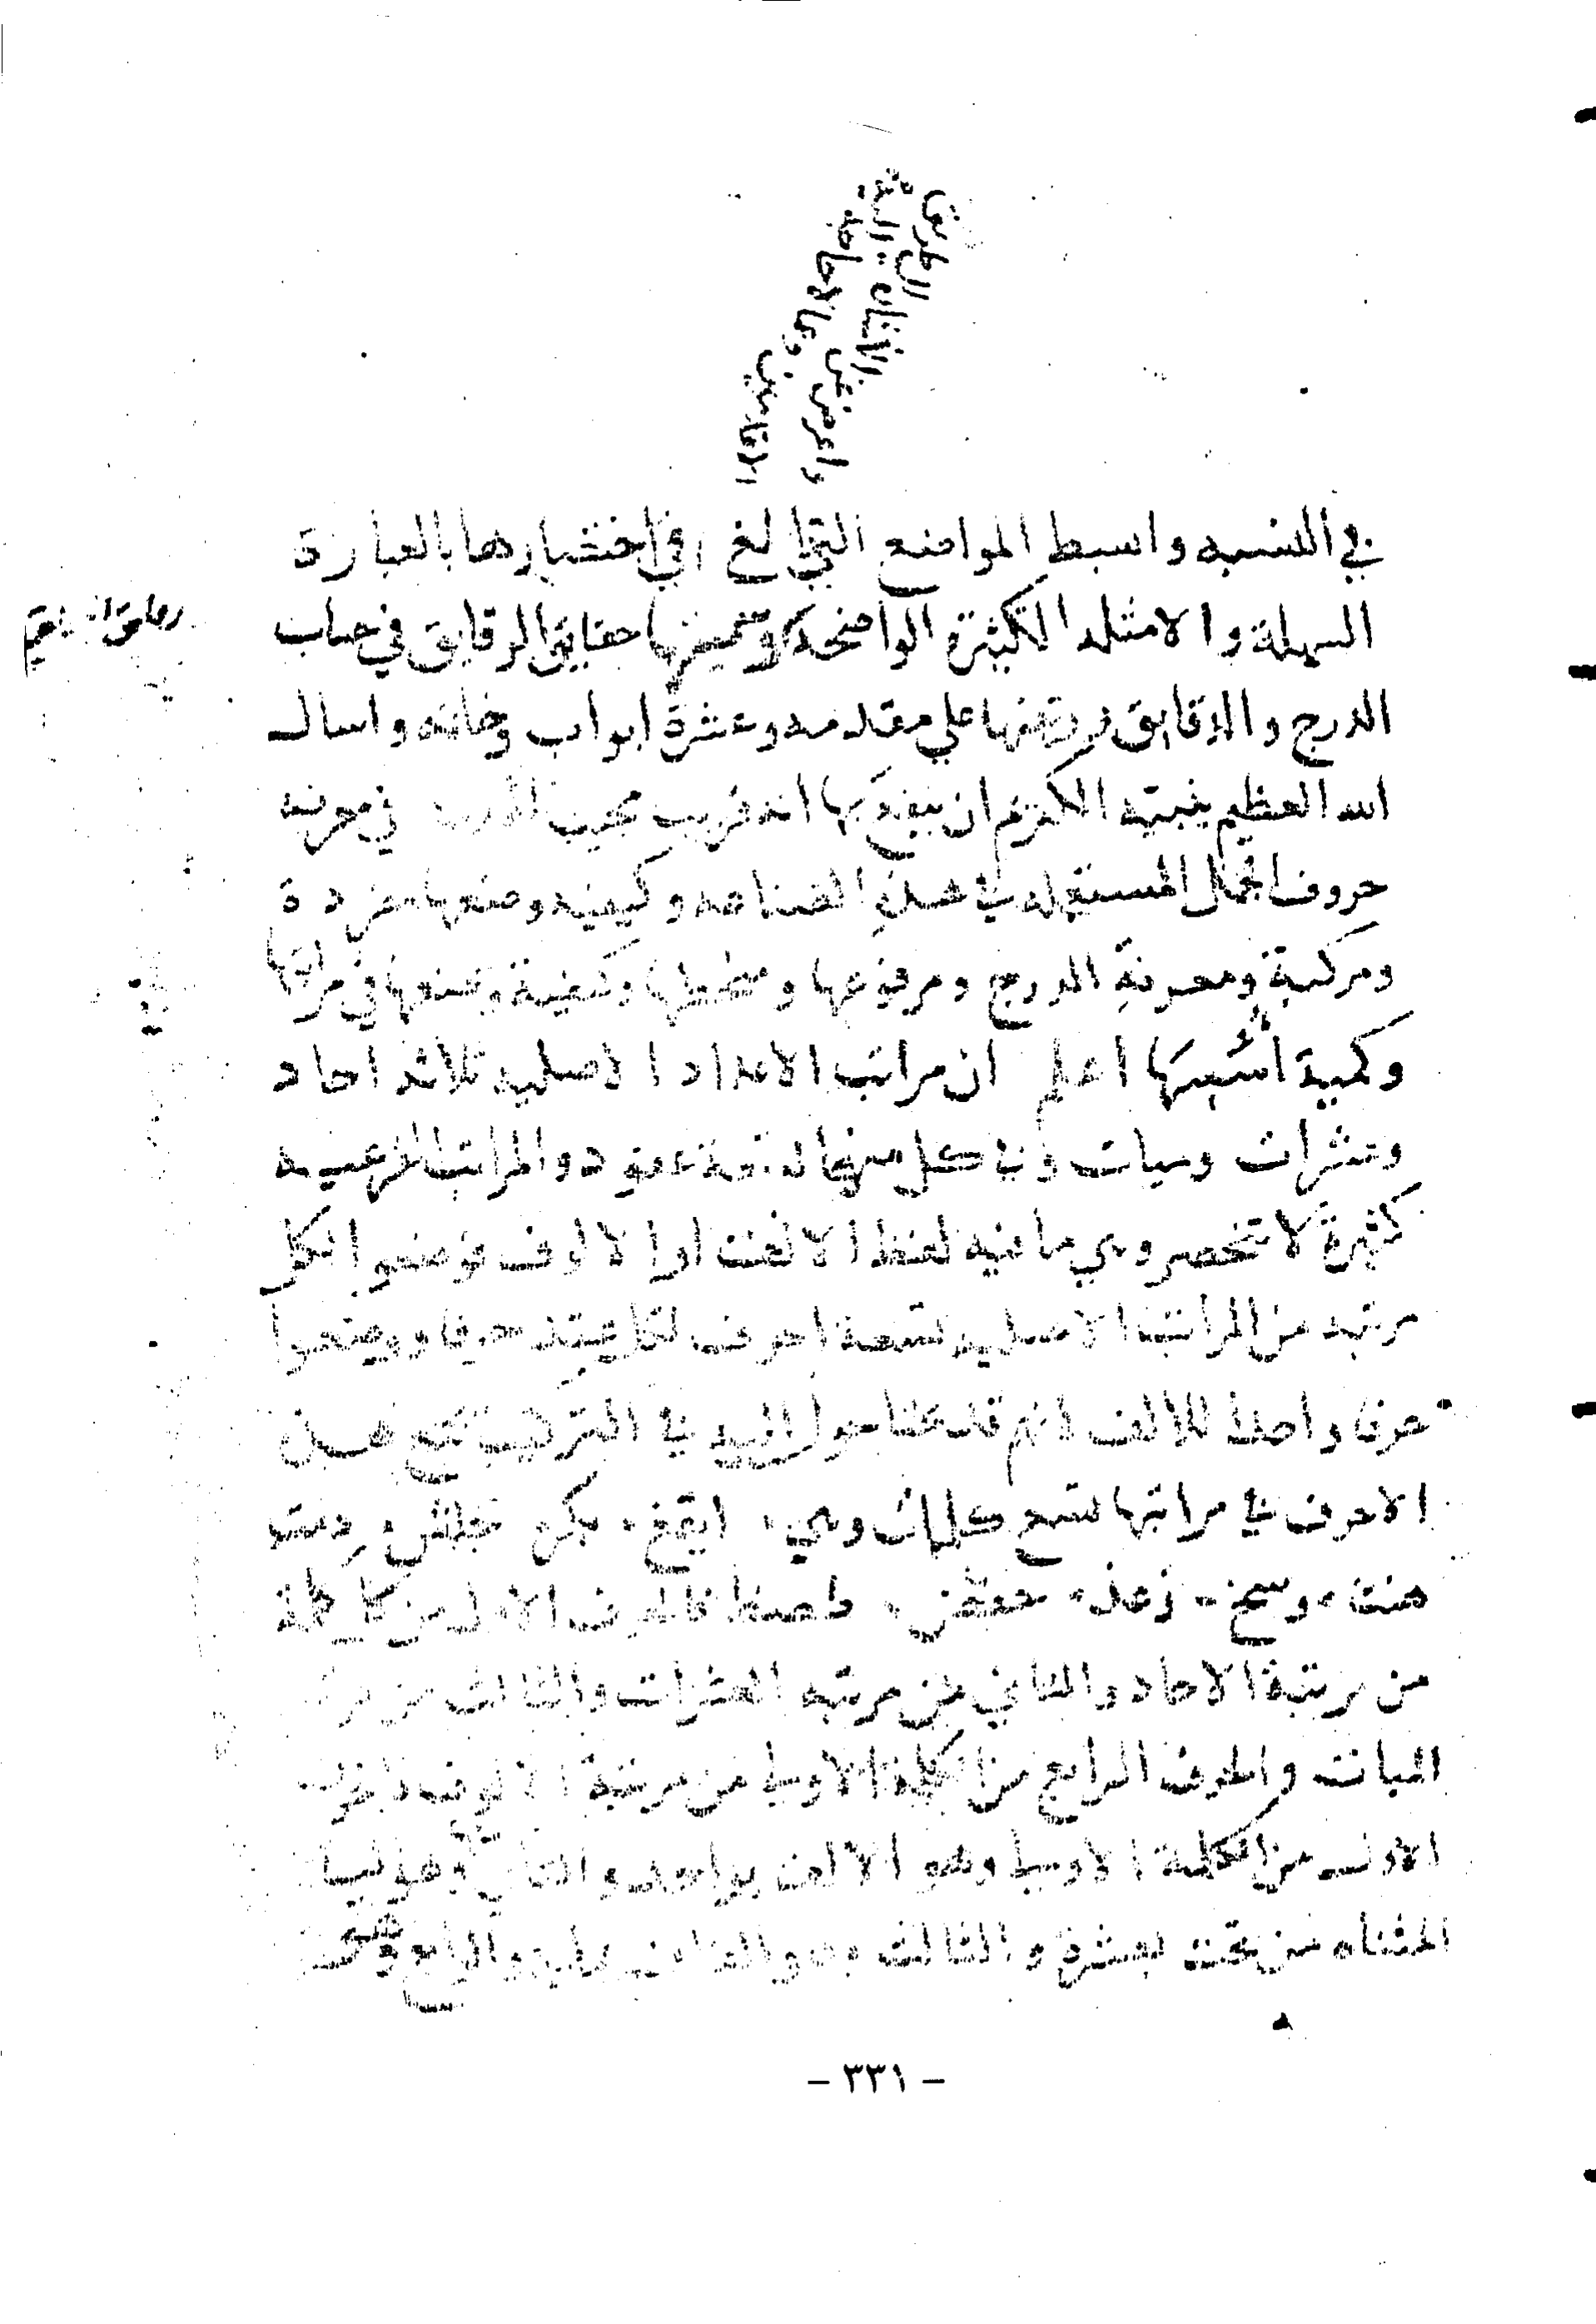 الطريق
واعرض عن
الاقدمين
في التنبيه وابسط المواضع التي بالغ في اختصارها بالعبارة
السهلة والامثلة الكثيرة الواضحة وسميتها حقايق الرقايق في حساب
الدرج والدقايق ورتبتها علي مقدمه وعشرة ابواب وخاتمه واسال
الله العظيم بنبيه الكريم ان ينفع بها انه قريب مجيب المقدمه في معرفه
حروف الجمل المستعمله في هذه الصناعه وكيفيه وضعها مفردة
ومركبة ومعرفة الدرج ومرفوعها ومنحطها وكيفية وضعها في مراتبها
وكمية أسسها اعلم ان مراتب الاعداد الاصليه ثلاثه احاد
وعشرات وميات وفي كل منها تسعة عقود والمراتب الفرعيه
كثيرة لا تنحصر وهي ما فيه لفظ الالف او الالوف فوضعوا لكل
مرتبه من المراتب الاصليه تسعة احرف لكل عقد حرفا ووضعوا
حرفا واحدا للالف لانهم قد يحتاجوا اليه في التركيب تجمع هذه
الاحرف في مراتبها تسع كلمات وهي ايقغ بكر جلش دمت
هنث وسخ زعذ حفض طصظ فالحرف الاول من كل كلمة
من مرتبة الاحاد والثاني من مرتبه العشرات والثالث من مرتبة
الميات والحرف الرابع من الكلمة الاولي من مرتبة الالوف فالحرف
الاول من الكلمة الاولي وهو الالف بواحد والثاني وهو اليا
المثناه من تحت بعشرة والثالث وهو القاف بمايه والرابع وهو
- ٣٣١ -